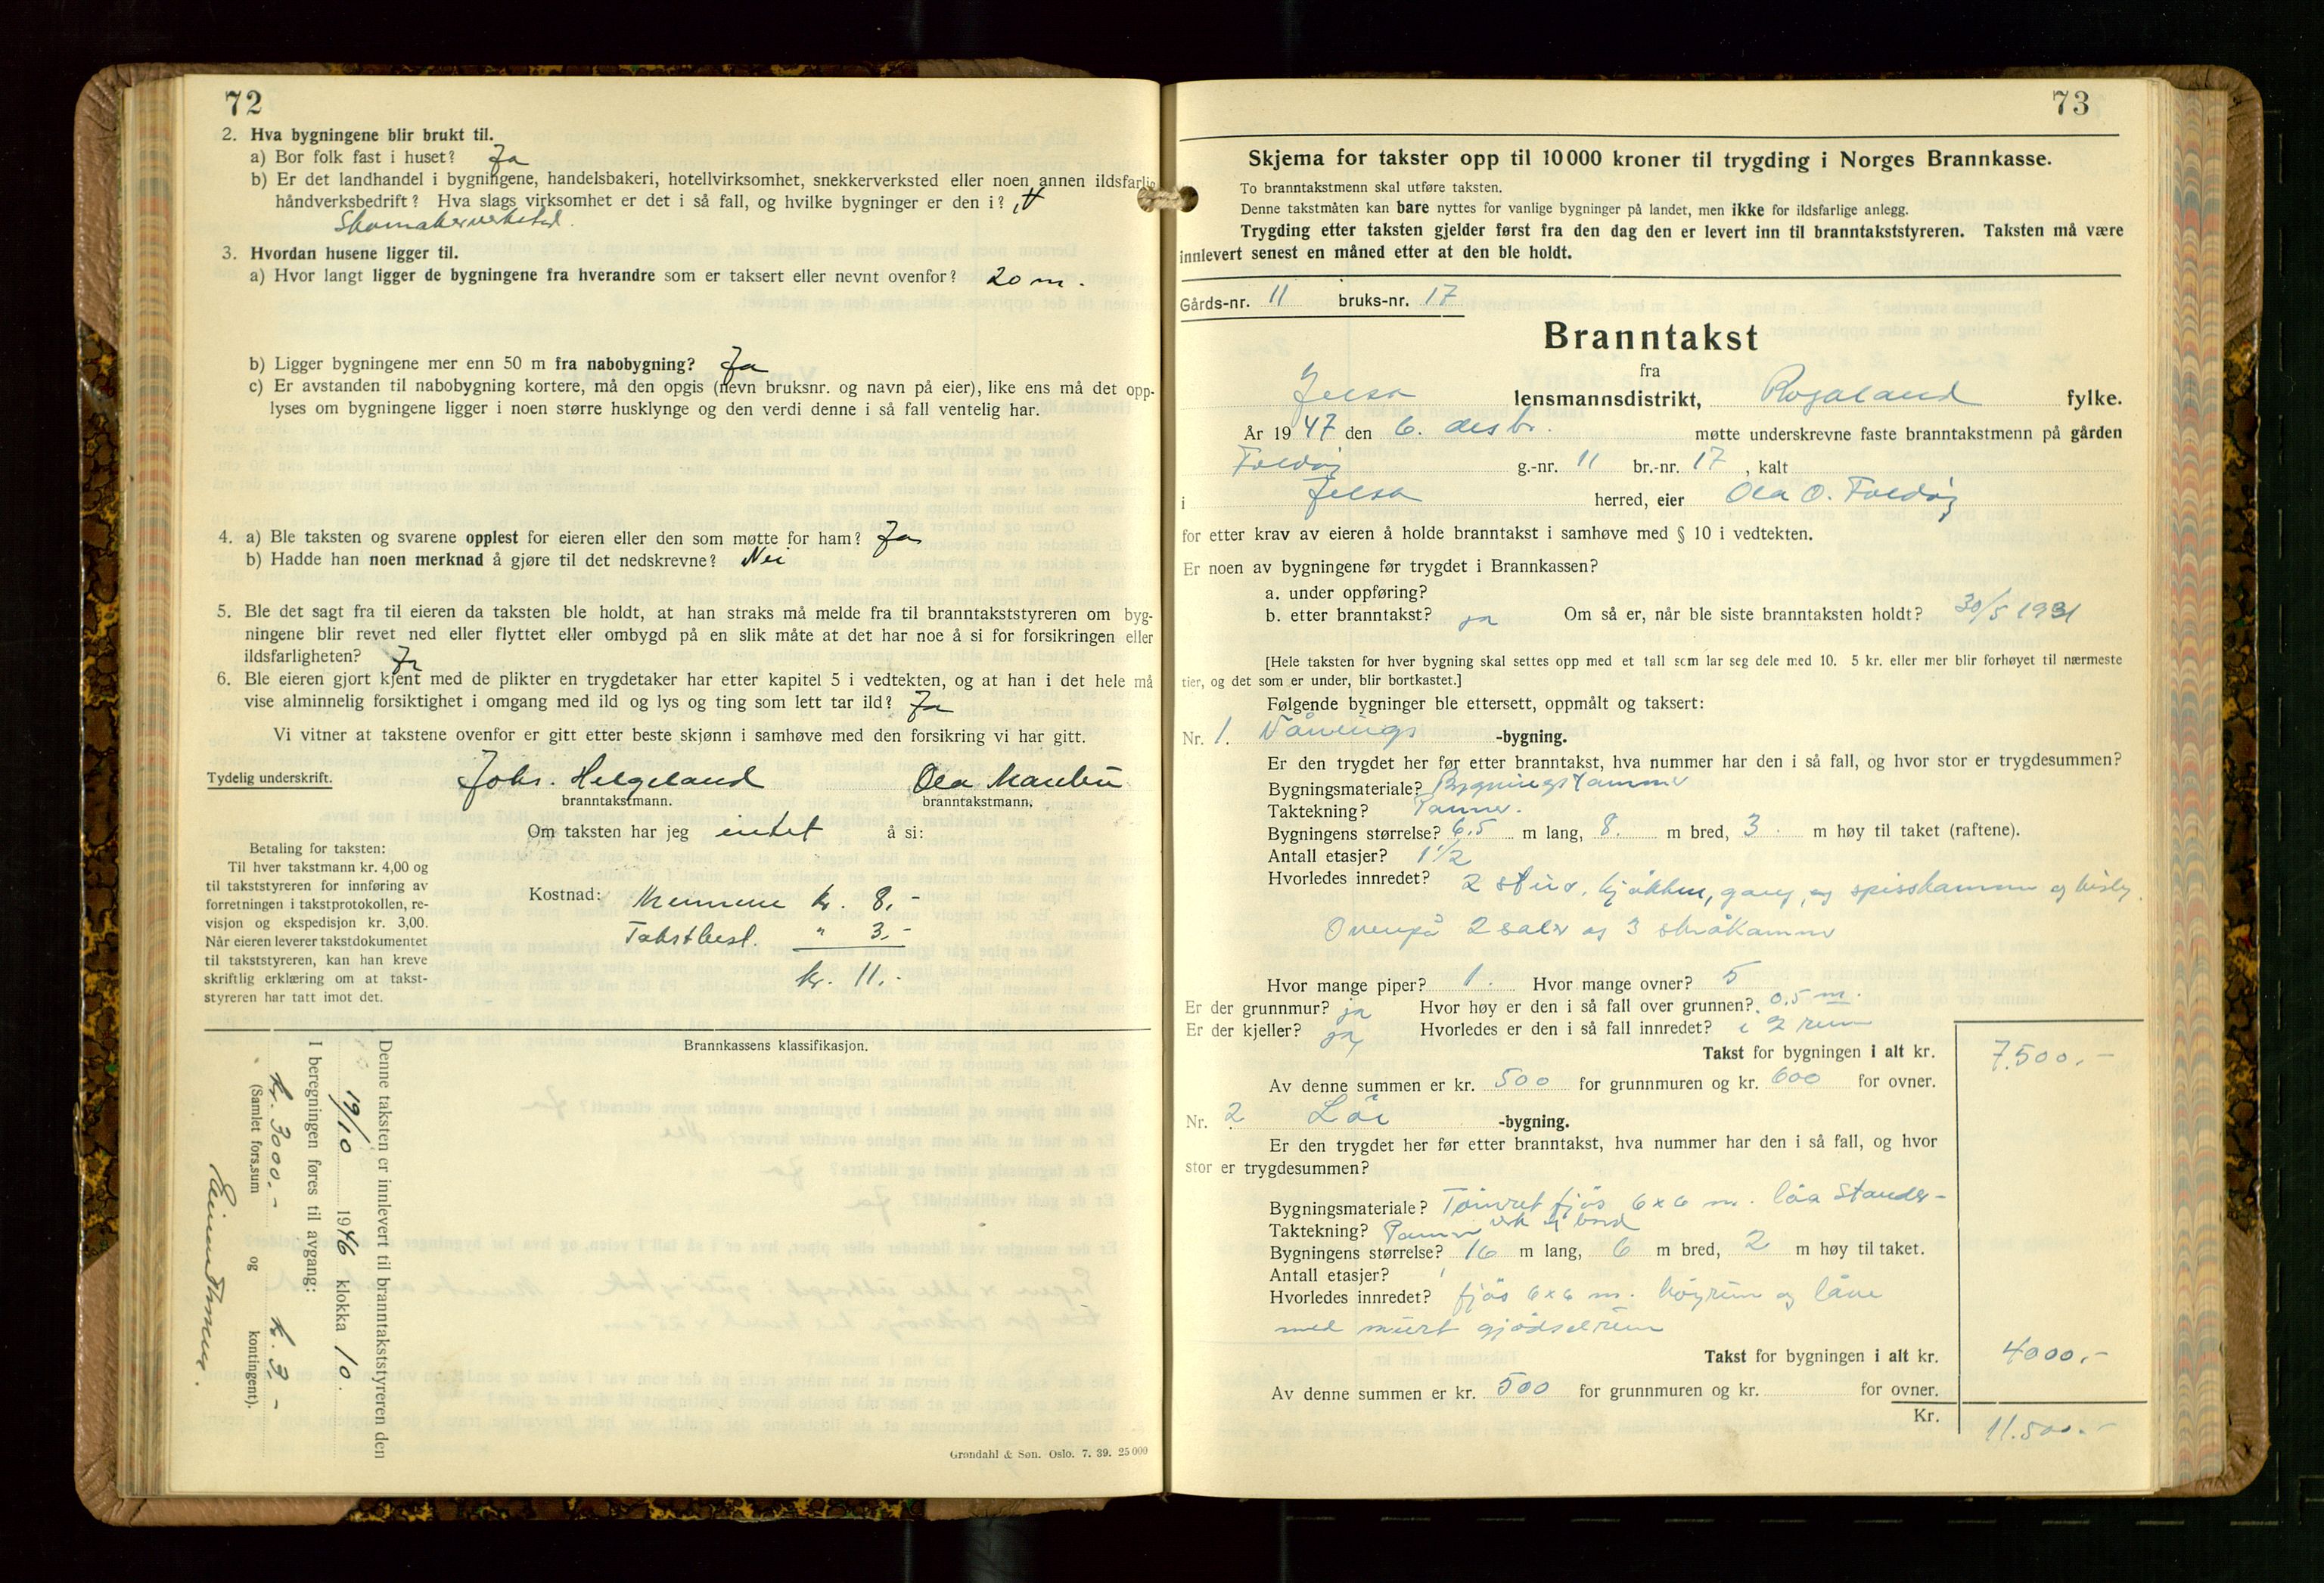 72
2. Hva bygningene blir brukt til.
a) Bor folk fast i huset? Ja
b) Er det landhandel i bygningene, handelsbakeri, hotellvirksomhet, snekkerverksted eller noen annen ildsfarlig
håndverksbedrift? Hva slags virksomhet er det i så fall, og hvilke bygninger er den i?
Skomakerverksted.
3. Hvordan husene ligger til.
a) Hvor langt ligger de bygningene fra hverandre som er taksert eller nevnt ovenfor? 20 m.
b) Ligger bygningene mer enn 50 m fra nabobygning? Ja
c) Er avstanden til nabobygning kortere, må den opgis (nevn bruksnr. og navn på eier), like ens må det opp-
lyses om bygningene ligger i noen større husklynge og den verdi denne i så fall ventelig har.
4. a) Ble taksten og svarene opplest for eieren eller den som møtte for ham? Ja
b) Hadde han noen merknad å gjøre til det nedskrevne? Nei
5. Ble det sagt fra til eieren da taksten ble holdt, at han straks må melde fra til branntakststyreren om byg-
ningene blir revet ned eller flyttet eller ombygd på en slik måte at det har noe å si for forsikringen eller
ildsfarligheten? Ja
6. Ble eieren gjort kjent med de plikter en trygdetaker har etter kapitel 5 i vedtekten, og at han i det hele må
vise alminnelig forsiktighet i omgang med ild og lys og ting som lett tar ild? Ja
Vi vitner at takstene ovenfor er gitt etter beste skjønn i samhøve med den forsikring vi har gitt.
Tydelig underskrift. Johs. Helgeland Ola
branntakstmann. branntakstmann.
Om taksten har jeg intet å si:
Betaling for taksten:
Til hver takstmann kr. 4,00 og
til takststyreren for innføring av
forretningen i takstprotokollen, re-
visjon og ekspedisjon kr. 3,00.
Når eieren leverer takstdokumentet
til takststyreren, kan han kreve
skriftlig erklæring om at takst-
styreren har tatt imot det.
Kostnad: Mennene kr. 8,-
Takstbest. " 3,-
kr. 11.-
Brannkassens klassifikasjon.
Denne taksten er innlevert til branntakststyreren den
19/10 1946 klokka 10.
I beregningen føres til avgang:
kr. 3000.- kr. 3.-
(Samlet fors.sum og kontingent).
Grøndahl & Søn. Oslo. 7. 39. 25 000
73
Skjema for takster opp til 10 000 kroner til trygding i Norges Brannkasse.
To branntakstmenn skal utføre taksten.
Denne takstmåten kan bare nyttes for vanlige bygninger på landet, men ikke for ildsfarlige anlegg.
Trygding etter taksten gjelder først fra den dag den er levert inn til branntakststyreren. Taksten må være
innlevert senest en måned etter at den ble holdt.
Gårds-nr. 11 bruks-nr. 17
Branntakst
fra
Jelsa lensmannsdistrikt, Rogaland fylke.
År 1947 den 6. desbr. møtte underskrevne faste branntakstmenn på gården
Foldøy g.-nr. 11 br.-nr. 17, kalt
i Jelsa herred, eier Ola O. Foldøy
for etter krav av eieren å holde branntakst i samhøve med § 10 i vedtekten.
Er noen av bygningene før trygdet i Brannkassen?
a. under oppføring?
b. etter branntakst? ja Om så er, når ble siste branntaksten holdt? 30/5 1931
[Hele taksten for hver bygning skal settes opp med et tall som lar seg dele med 10. 5 kr. eller mer blir forhøyet til nærmeste
tier, og det som er under, blir bortkastet.]
Følgende bygninger ble ettersett, oppmålt og taksert:
Nr. 1. Vånings -bygning.
Er den trygdet her før etter branntakst, hva nummer har den i så fall, og hvor stor er trygdesummen?
Bygningsmateriale? Bygningstømmer
Taktekning? Panner.
Bygningens størrelse? 6.5 m lang, 8. m bred, 3. m høy til taket (raftene).
Antall etasjer? 1 1/2
Hvorledes innredet? 2 stuer, kjøkken, gang, og spisskammer og bislag.
Ovenpå 2 saler og 3 småkammer
Hvor mange piper? 1. Hvor mange ovner? 5
Er der grunnmur? ja Hvor høy er den i så fall over grunnen? 0.5 m.
Er der kjeller? ja Hvorledes er den i så fall innredet? i 2 rum
Takst for bygningen i alt kr. 7.500.-
Av denne summen er kr. 500 for grunnmuren og kr. 600 for ovner.
Nr. 2 Løe -bygning.
Er den trygdet her før etter branntakst, hva nummer har den i så fall, og hvor
stor er trygdesummen?
Bygningsmateriale? Tømret fjøs 6x6 m. løa Stander-
verk og bord
Taktekning? Panner
Bygningens størrelse? 16 m lang, 6 m bred, 2 m høy til taket.
Antall etasjer? 1
Hvorledes innredet? fjøs 6x6 m. høyrum og låve
med murt gjødselrum
Takst for bygningen i alt kr. 4000.-
Av denne summen er kr. 500 for grunnmuren og kr. for ovner.
Kr. 11.500.-